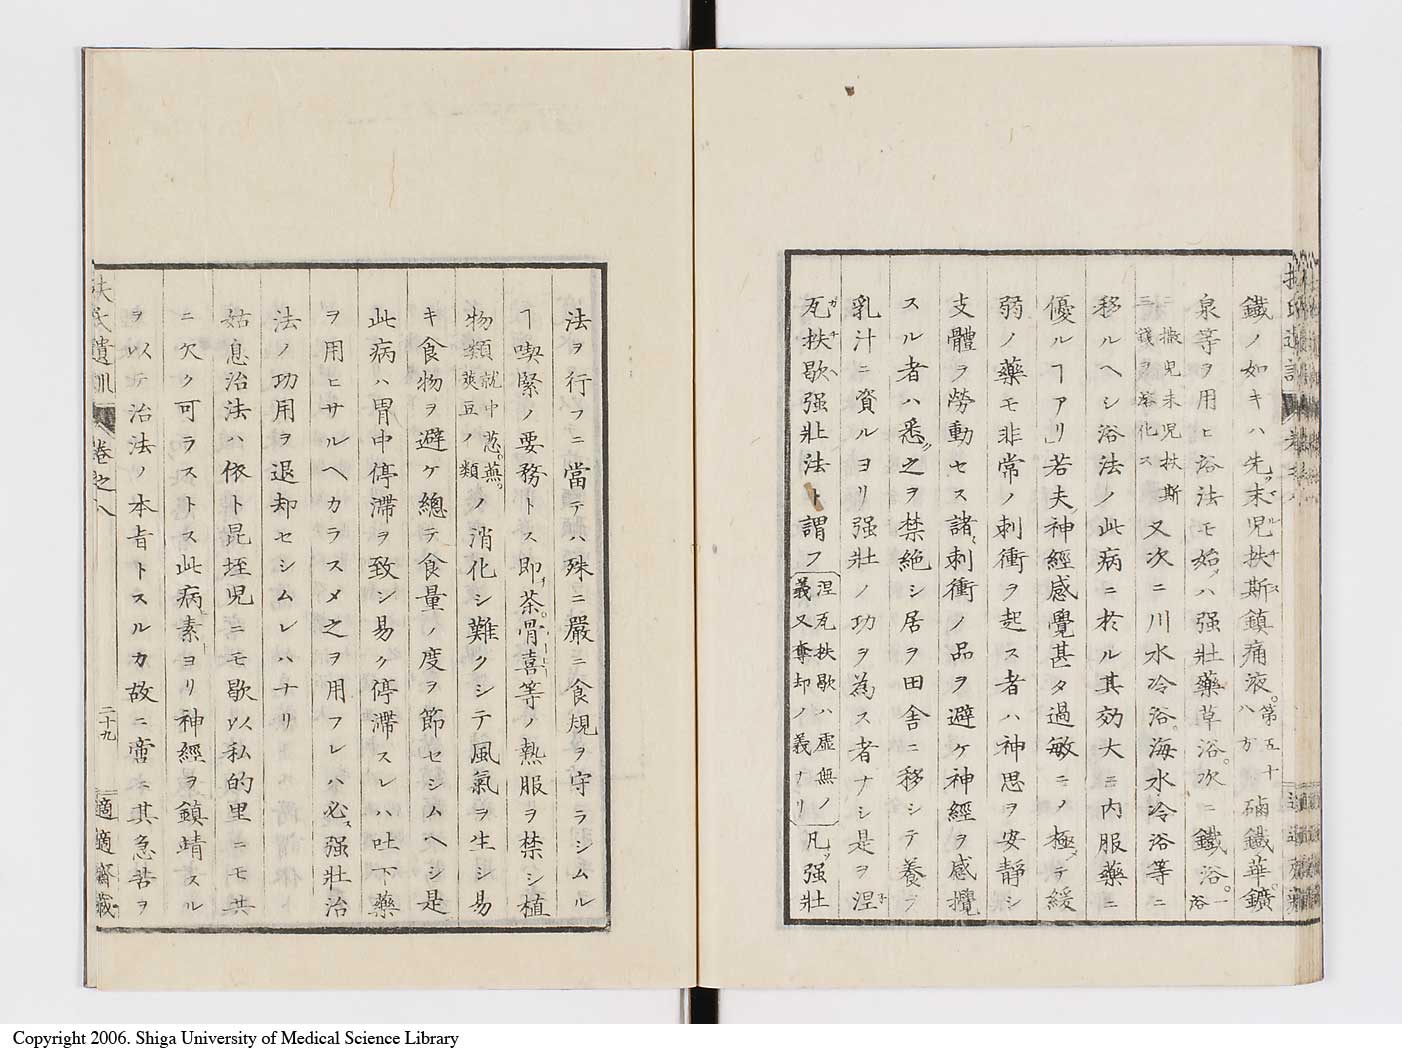 鐵ノ如キハ先ッ末児扶斯鎮痛液第五十八方硇鐵華鑛
泉等ヲ用ヒ浴法モ始メハ强壯藥草浴次ニ鐵浴一浴
ニ撒児末児扶斯二三錢ヲ溶化ス又次ニ川水冷浴海水冷浴等ニ
移ルヘシ浴法ノ此病ニ於ル其効大ニ内服藥ニ
優ルヿアリ」若夫神經感覺甚タ過敏ニノ極メテ緩
弱ノ藥モ非常ノ刺衝ヲ起ス者ハ神思ヲ安靜シ
支體ヲ勞動セス諸刺衝ノ品ヲ避ケ神經ヲ感攪
スル者ハ悉ク之ヲ禁絶シ居ヲ田舎ニ移シテ養フ
乳汁ニ資ルヨリ强壯ノ功ヲ為ス者ナシ是ヲ涅
瓦扶歇强壯法ト謂フ涅瓦扶歇ハ虚無ノ義又奪却ノ義ナリ凡ソ强壯
法ヲ行フニ當テハ殊ニ嚴ニ食規ヲ守ラシムル
ヿ喫緊ノ要務トス即チ茶骨喜等ノ熱服ヲ禁シ植
物類就中葱蕪莢豆ノ類ノ消化シ難クシテ風氣ヲ生シ易
キ食物ヲ避ケ總テ食量ノ度ヲ節セシムヘシ是
此病ハ胃中停滯ヲ致シ易ク停滯スレハ吐下藥
ヲ用ヒサルヘカラスメ之ヲ用フレハ必ス强壯治
法ノ功用ヲ退却セシムレハナリ
姑息治法ハ依ト昆垤児ニモ歇以私的里ニモ共
ニ欠ク可ラストス此病素ヨリ神經ヲ鎮靖スル
ヲ以テ治法ノ本旨トスルカ故ニ啻ニ其急苦ヲ
扶氏遺訓 卷之八 二十九 適適齋藏